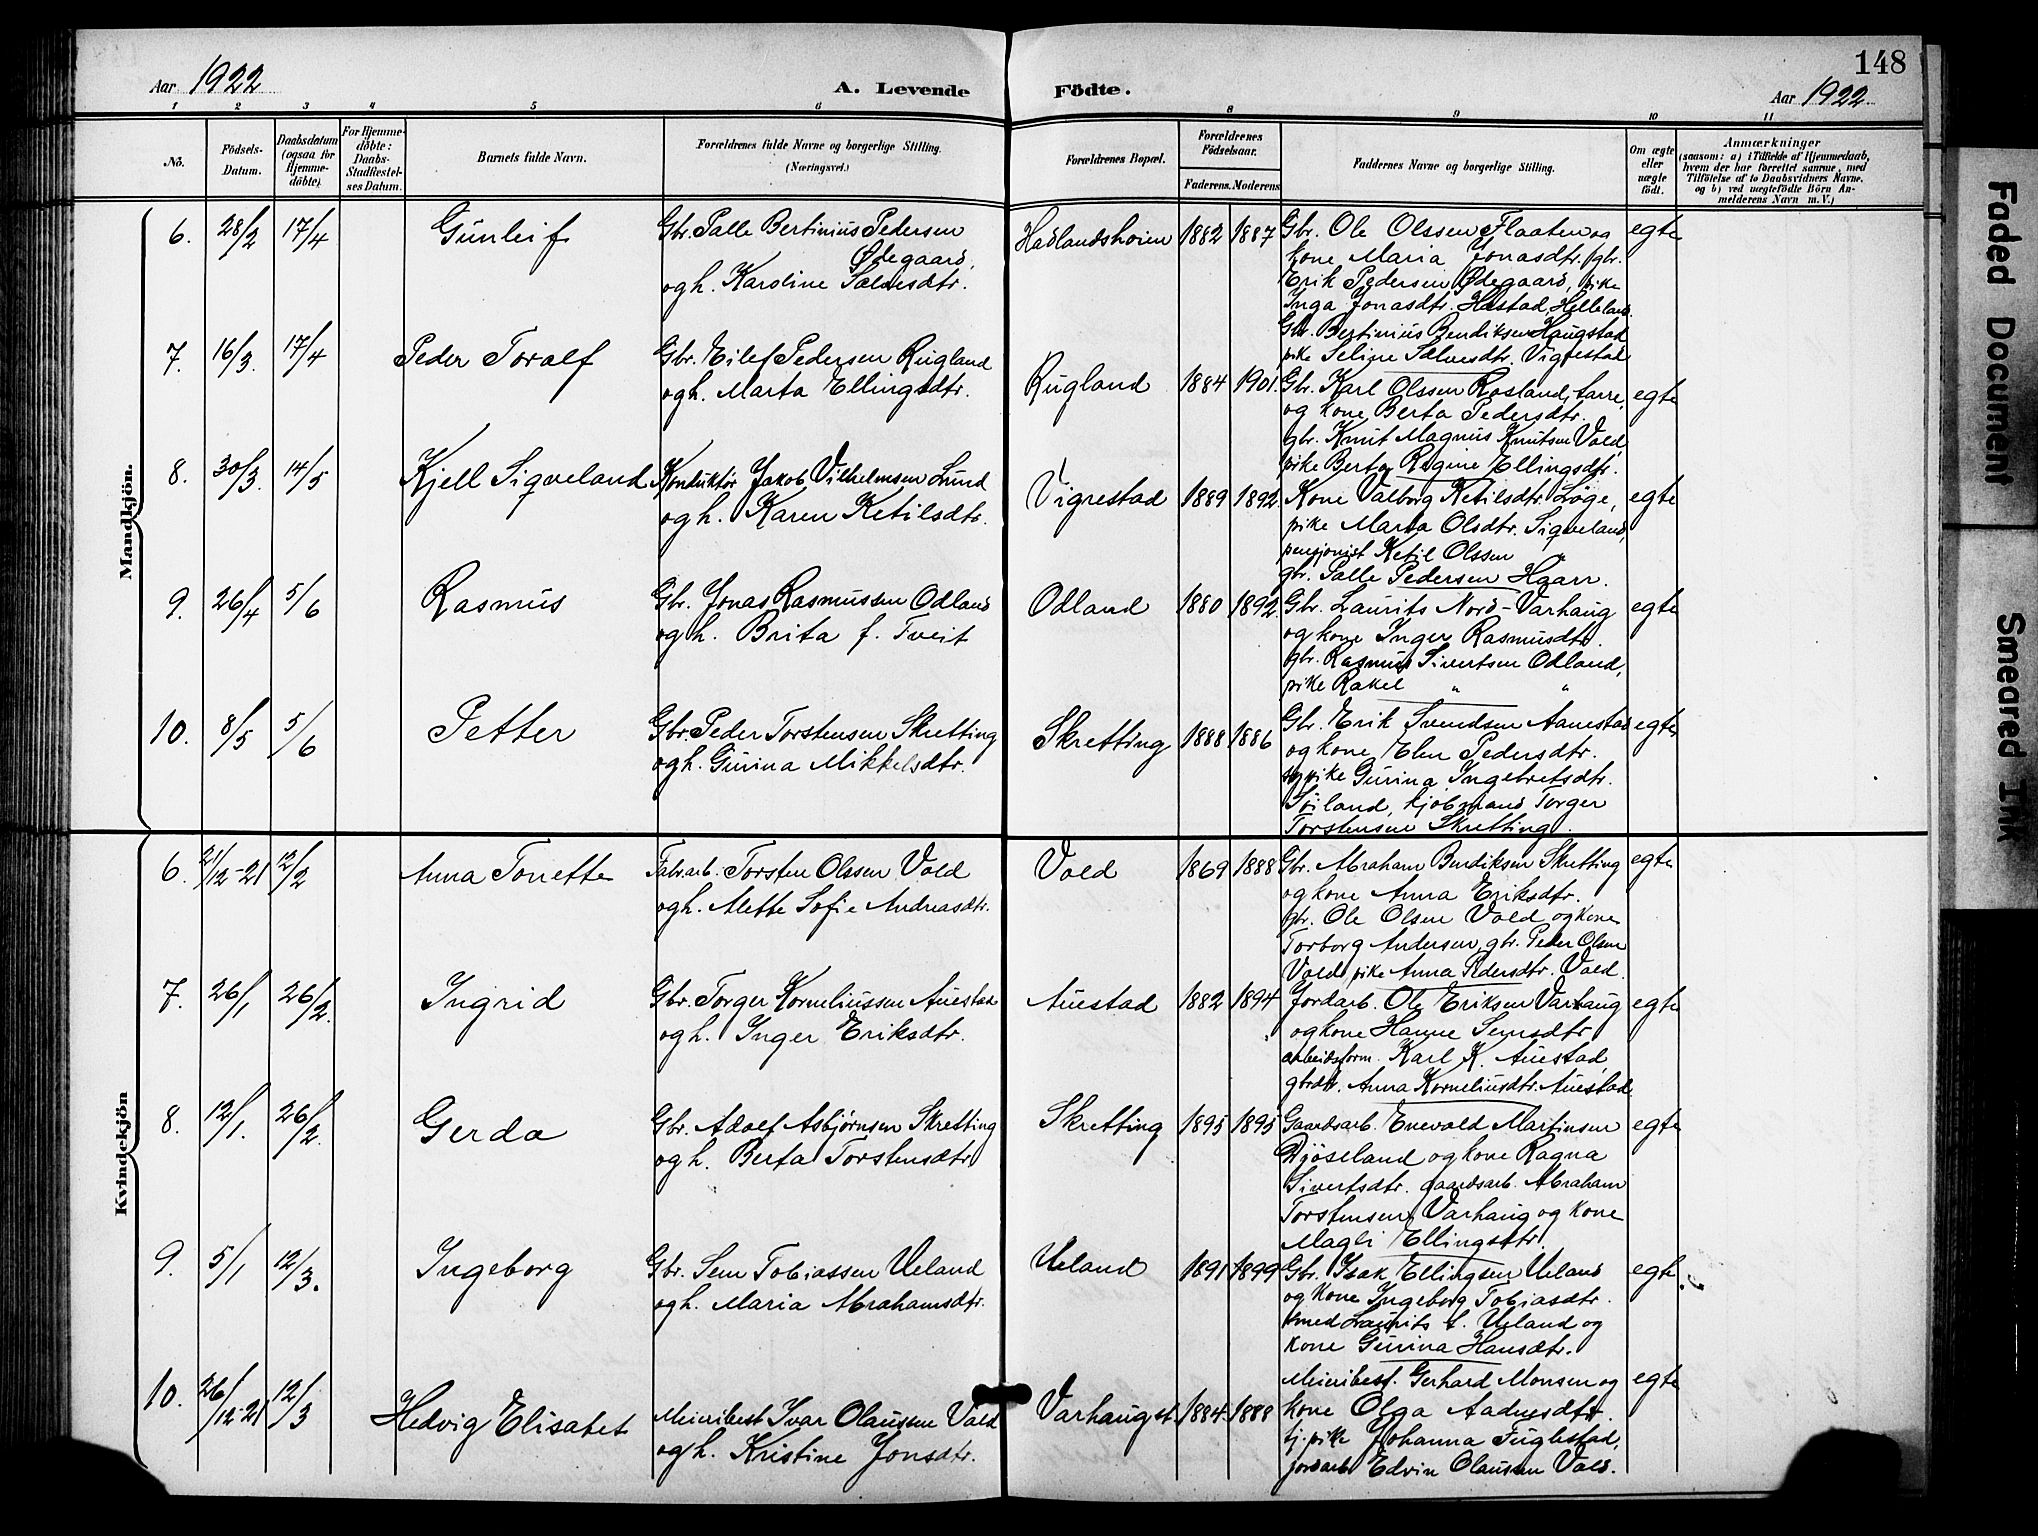 148
Aar 1922
A. Levende
Födte.
Aar 1922
1 2 3 4 5 6 8 9 10 11
Nö.
Födsels-
Datum.
Daabsdatum
(ogsaa for
Hjemme-
döbte).
For Hjemme-
döbte:
Daabs-
Stadfæstel-
ses Datum.
Barnets fulde Navn.
Forældrenes fulde Navne og borgerlige Stilling.
(Næringsvei.)
Forældrenes Bopæl.
Forældrenes
Födselsaar.
Faderens. Moderens.
Faddernes Navne og borgerlige Stilling.
Om ægte
eller
uægte
födt.
Anmærkninger
(saasom: a) i Tilfælde af Hjemmedaab,
hvem der har forrettet samme, med
Tilföielse af to Daabsvidners Navne,
og b) ved uægtefödte Börn An-
melderens Navn m. V.)
Mandkjön.
6. 28/2 17/4 Gunleif
Gbr. Palle Bertinius Pedersen
Ødegaard,
og h. Karoline Salvesdtr.
Hadlandsheien 1882 1887
Gbr. Ole Olssen Flaaten og
kone Maria Jonasdtr. gbr.
Erik Pedersen Ødegaard, pike
Inga Jonasdtr. Hæstad, Helleland.
Gbr. Bertinius Bendiksen Haugstad
pike Seline Salvesdtr. Vigrestad
egte
7. 16/3. 17/4 Peder Toralf
Gbr. Eilef Pedersen Rugland
og h. Marta Ellingsdtr.
Rugland 1884 1901.
Gbr. Karl Olssen Rosland, Varre,
og kone Berta Pedersdtr.
gbr. Knut Magnus Knutsen Vold,
pike Berta Regine Ellingsdtr.
egte
8. 30/3. 14/5 Kjell Siqveland
Konduktør Jakob Vilhelmsen Lund
og h. Karen Ketilsdtr.
Vigrestad 1889 1892.
Kone Valborg Ketilsdtr. Løge,
pike Marta Olsdtr. Siqveland,
pensjonist Ketil Olssen "
gbr. Palle Pedersen Haarr.
egte
9. 26/4 5/6 Rasmus
Gbr. Jonas Rasmussen Odland
og h. Brita f. Tveit
Odland 1880 1892.
Gbr. Laurits Nord-Varhaug
og kone Inger Rasmusdtr.
gbr. Rasmus Sivertsen Odland,
pike Rakel " "
egte
10. 8/5 5/6 Petter
Gbr. Peder Torstensen Skretting
og h. Gurina Mikkelsdtr.
Skretting 1888 1886
Gbr. Erik Svendsen Aanestad
og kone Elen Pedersdtr.
sypike Gurina Ingebretsdtr.
Søiland, kjøbmand Torger
Torstensen Skretting.
egte
Kvindekjön
6. 21/12-21 12/2 Anna Tonette
Fabr.arb. Torsten Olssen Vold
og h. Alette Sofie Andreasdtr.
Vold 1869 1888
Gbr. Abraham Bendiksen Skretting
og kone Anna Eriksdtr.
gbr. Ole Olsen Vold og kone
Torborg Andersen, gbr. Peder Olsen
Vold, pike Anna Pedersdtr. Vold.
egte
7. 26/1 26/2. Ingrid
Gbr. Torger Korneliussen Auestad
og h. Inger Eriksdtr.
Auestad 1882 1894
Jordarb. Ole Eriksen Varhaug
og kone Hanne Semsdtr
arbeidsform. Karl K. Auestad,
gbrdtr. Anna Korneliusdtr. Auestad
egte
8. 12/1. 26/2. Gerda
Gbr. Adolf Asbjørnsen Skretting
og h. Berta Torstensdtr
Skretting 1895 1895
Gaardsarb. Enevald Martinsen
Djøseland og kone Ragna
Sivertsdtr. gaardsarb. Abraham
Torstensen Varhaug og kone
Magli Ellingsdtr.
egte
9. 5/1 12/3. Ingeborg
Gbr. Sem Tobiassen Ueland
og h. Maria Abrahamsdtr.
Ueland 1891 1899
Gbr. Isak Ellingsen Ueland
og kone Ingeborg Tobiasdtr.
smed Laurits t. Ueland og
kone Gurina Hansdtr.
egte
10. 26/12-21 12/3 Hedvig Elisabet
Meieribest Ivar Olaussen Vold
og h. Kristine Jonsdtr.
Varhaugst. 1884 1888
Meieribest. Gerhard Monsen og
kone Olga Aadnesdtr.
tj.pike Johanna Fuglestad,
jordarb. Edvin Olausen Vold.
egte
Faded Document
Smeared Ink